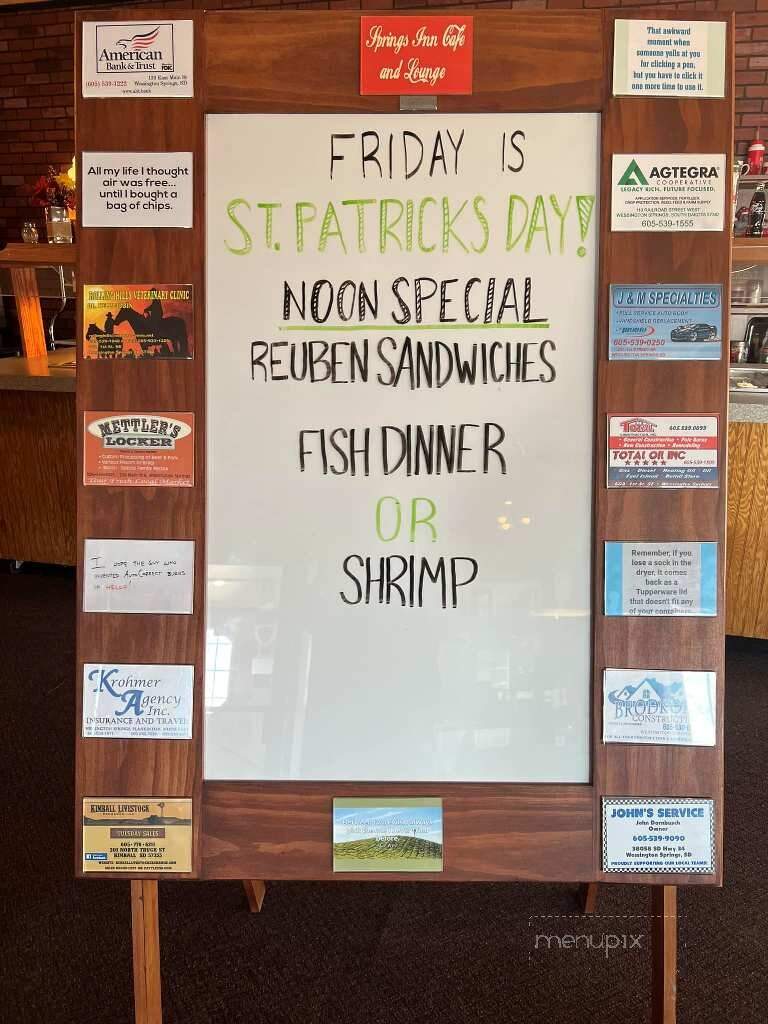 Springs Inn Cafe
and Lounge
American
Bank & Trust
(605) 539-1222
Wessington Springs, SD
That awkward
moment when
someone yells at you
for clicking a pen,
but you have to click it
one more time to use it.
FRIDAY IS
ST. PATRICKS DAY!
NOON SPECIAL
REUBEN SANDWICHES
FISH DINNER
OR
SHRIMP
All my life I thought
air was free...
until I bought a
bag of chips.
AGTEGRA
COOPERATIVE
LEGACY RICH. FUTURE FOCUSED.
WESSINGTON SPRINGS, SOUTH DAKOTA
605-539-1555
ROLLING HILLS VETERINARY CLINIC
J & M SPECIALTIES
605-539-0250
METTLER'S
LOCKER
Your Fresh Local Market
TOTAL
605.539.0899
TOTAL OIL INC
I HOPE THE GUY WHO
INVENTED AUTOCORRECT BURNS
IN HELLO!
Remember, if you
lose a sock in the
dryer, it comes
back as a
Tupperware lid
that doesn't fit any
of your containers.
Krohmer
Agency
Inc.
INSURANCE AND TRAVEL
KIMBALL LIVESTOCK
TUESDAY SALES
KIMBALL SD
JOHN'S SERVICE
John Dornbusch
Owner
605-539-9090
38056 SD Hwy 34
Wessington Springs, SD
PROUDLY SUPPORTING OUR LOCAL TEAMS!
menupix